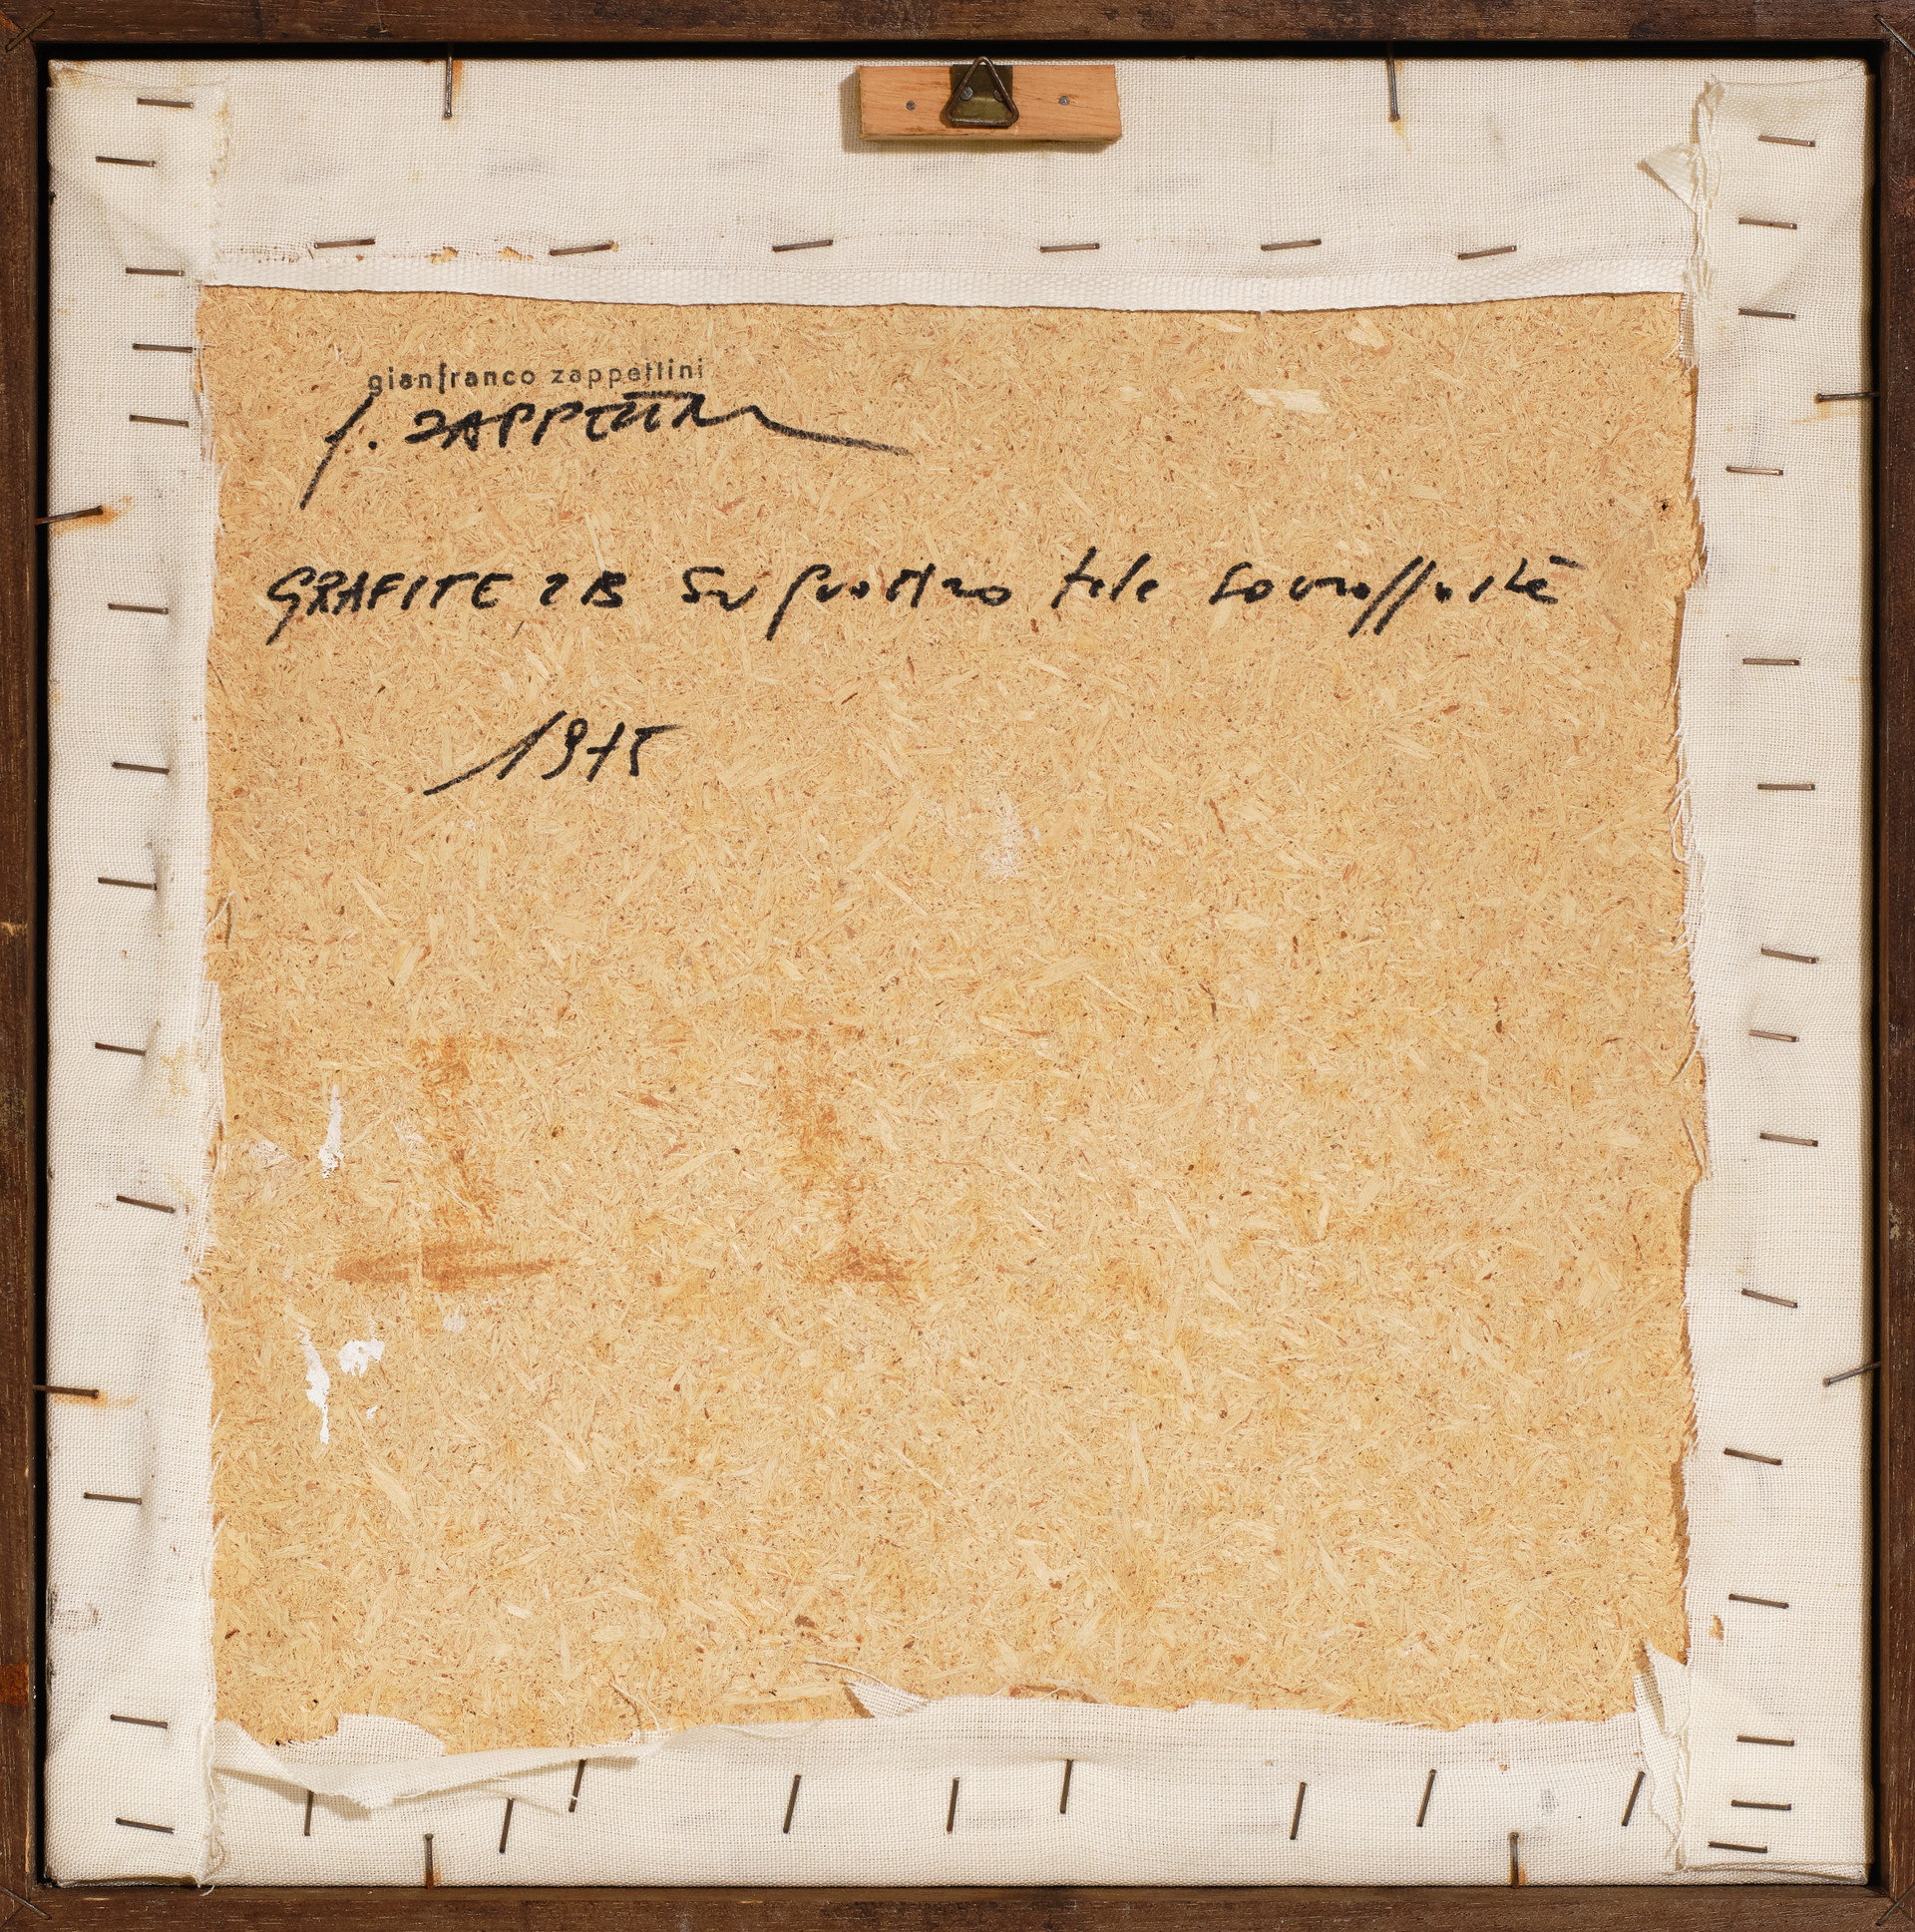 gianfranco zappettini
G. ZAPPETTINI
GRAFITE 2B Su quattro tele sovrapposte
1975